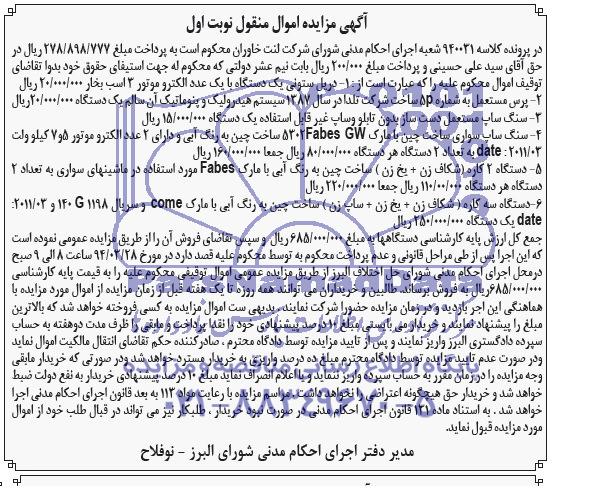 آگهی مزایده اموال منقول نوبت اول
در پرونده کلاسه ۹۴۰۰۲۱ شعبه اجرای احکام مدنی شورای شرکت لنت خاوران محکوم است به پرداخت مبلغ ۲۷۸/۸۹۸/۷۷۷ ریال در
حق آقای سید علی حسینی و پرداخت مبلغ ۲۰۰/۰۰۰ ریال بابت نیم عشر دولتی که محکوم له جهت استیفای حقوق خود بدوا تقاضای
توقیف اموال محکوم علیه را که عبارت است از: ۱- دریل ستونی یک دستگاه با یک عدد الکترو موتور ۳ اسب بخار ۲۰/۰۰۰/۰۰۰ ریال
۲- پرس مستعمل به شماره 5p ساخت شرکت تلدا در سال ۱۳۸۷ سیستم هیدرولیک و پنوماتیک آن سالم یک دستگاه ۲۰/۰۰۰/۰۰۰ ریال
۳- سنگ ساب مستعمل دست ساز بدون تابلو وساب غیر قابل استفاده یک دستگاه ۱۵/۰۰۰/۰۰۰ ریال
۴- سنگ ساپ سواری ساخت چین با مارک Fabes GW ۵۳۰۲ ساخت چین به رنگ آبی و دارای ۲ عدد الکترو موتور ۵و۷ کیلو ولت
date : ۲۰۱۱/۰۳ به تعداد ۲ دستگاه هر دستگاه ۸۰/۰۰۰/۰۰۰ ریال جمعا ۱۶۰/۰۰۰/۰۰۰ ریال
۵- دستگاه ۲ کاره (شکاف زن + پخ زن) ساخت چین به رنگ آبی با مارک Fabes مورد استفاده در ماشینهای سواری به تعداد ۲
دستگاه هر دستگاه ۱۱۰/۰۰/۰۰۰ ریال جمعا ۲۲۰/۰۰۰/۰۰۰ ریال
۶- دستگاه سه کاره ( شکاف زن + پخ زن + ساپ زن ) ساخت چین به رنگ آبی با مارک come و سریال ۱۱۹۸ G ۱۴۰ و ۲۰۱۱/۰۳:
date یک دستگاه ۲۵۰/۰۰۰/۰۰۰ ریال
جمع کل ارزش پایه کارشناسی دستگاهها به مبلغ ۶۸۵/۰۰۰/۰۰۰ ریال و سپس تقاضای فروش آن را از طریق مزایده عمومی نموده است
که این اجرا پس از طی مراحل قانونی و عدم پرداخت محکوم به توسط محکوم علیه قصد دارد در مورخ ۹۴/۰۲/۲۸ ساعت ۸ الی ۹ صبح
درمحل اجرای احکام مدنی شورای حل اختلاف البرز از طریق مزایده عمومی اموال توقیفی محکوم علیه را به قیمت پایه کارشناسی
۶۸۵/۰۰۰/۰۰۰ ریال به فروش برساند. طالبین و خریداران می توانند همه روزه تا یک هفته قبل از زمان مزایده از اموال مورد مزایده با
هماهنگی این اجرا بازدید و در زمان مزایده حضورا شرکت نمایند. بدیهی ست اموال مزایده به کسی فروخته خواهد شد که بالاترین
مبلغ را پیشنهاد نمایند و خریدار می بایستی مبلغ ۱۰ درصد پیشنهادی خود را نقدا پرداخت و مابقی را ظرف مدت دوهفته به حساب
سپرده دادگستری البرز واریز نمایند و پس از تایید مزایده توسط دادگاه محترم ، صادرکننده حکم تقاضای انتقال مالکیت اموال نماید
ودر صورت عدم تایید مزایده توسط دادگاه محترم مبلغ ده درصد واریزی به خریدار مسترد خواهد شد ودر صورتی که خریدار مابقی
وجه مزایده را در زمان مقرر به حساب سپرده واریز ننماید و یا اعلام انصراف نماید مبلغ ۱۰ درصد پیشنهادی خریدار به نفع دولت ضبط
خواهد شد و خریدار حق هیچگونه اعتراضی را نخواهد داشت. مراسم مزایده با رعایت مواد ۱۱۳ به بعد قانون اجرای احکام مدنی اجرا
خواهد شد . به استناد ماده ۱۳۱ قانون اجرای احکام مدنی در صورت نبود خریدار ، طلبکار نیز می تواند در قبال طلب خود از اموال
مورد مزایده قبول نماید.
مدیر دفتر اجرای احکام مدنی شورای البرز - نوفلاح
پایگاه اطلاع رسانی مناقصه و مزایده
۰۲۱-۸۸۳۴۹۶۷۰-۵